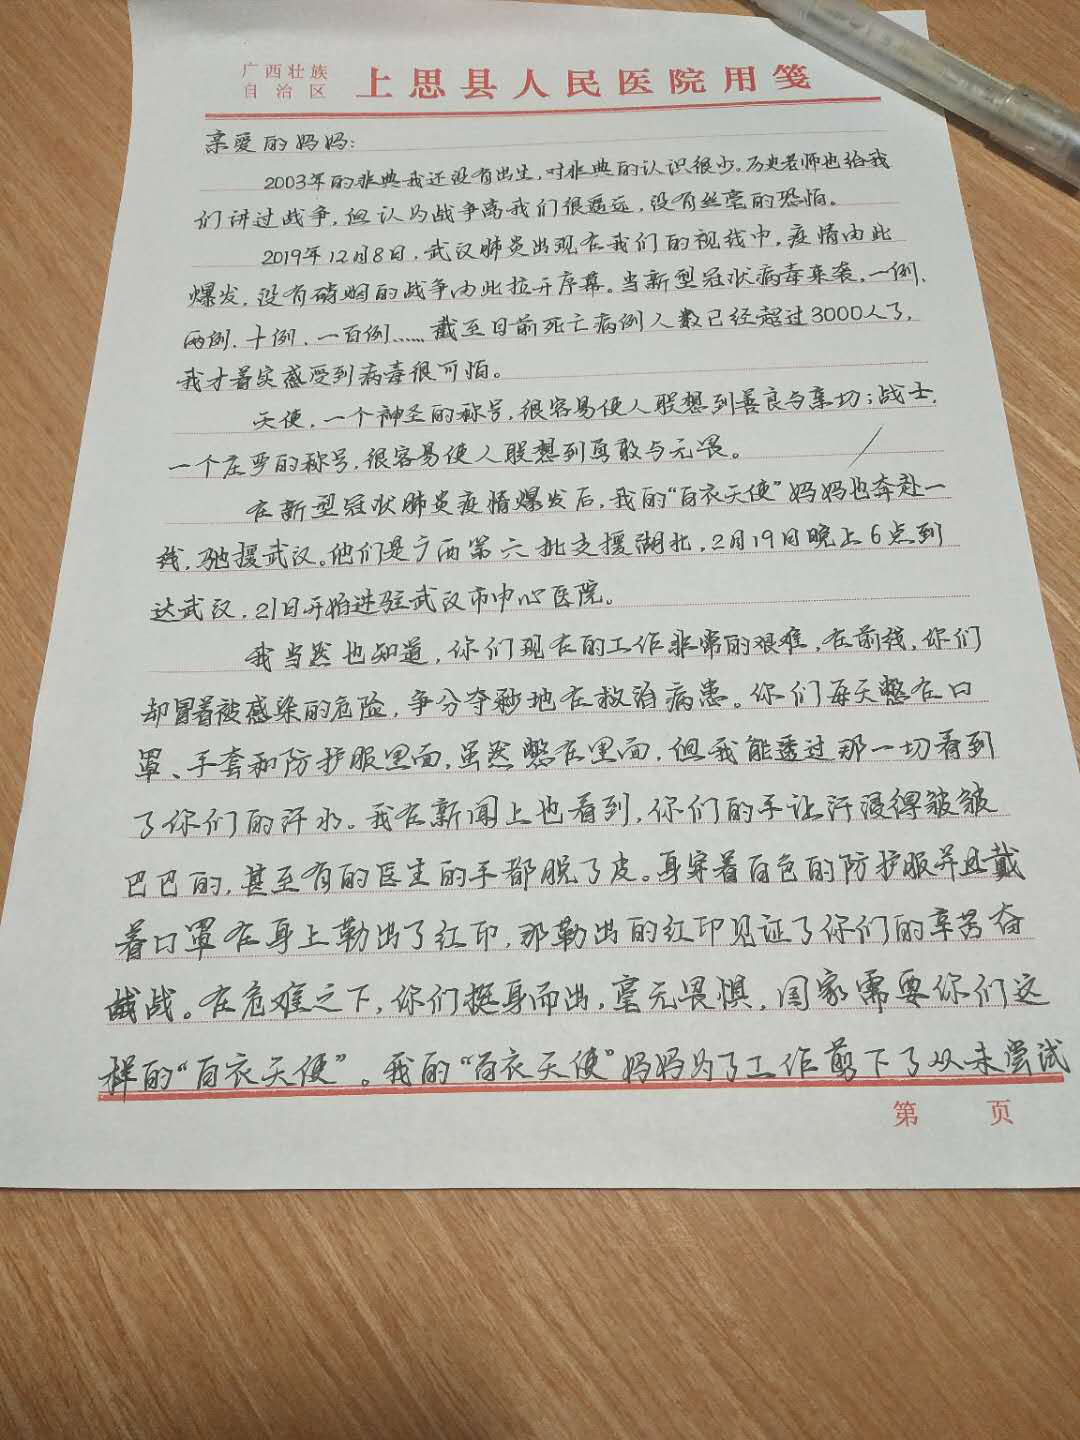 广西壮族
自治区
上思县人民医院用笺
亲爱的妈妈:
2003年的非典我还没有出生,对非典的认识很少。历史老师也给我
们讲过战争,但认为战争离我们很遥远,没有丝毫的恐怕。
2019年12月8日,武汉肺炎出现在我们的视线中,疫情由此
爆发,没有硝烟的战争由此拉开序幕。当新型冠状病毒来袭,一例、
两例、十例、一百例……截至目前死亡病例人数已经超过3000人了,
我才着实感受到病毒很可怕。
天使,一个神圣的称号,很容易使人联想到善良与亲切;战士,
一个庄严的称号,很容易使人联想到勇敢与无畏。
在新型冠状肺炎疫情爆发后,我的“白衣天使”妈妈也奔赴一
线,驰援武汉。他们是广西第六批支援湖北,2月19日晚上6点到
达武汉,21日开始进驻武汉市中心医院。
我当然也知道,你们现在的工作非常的艰难,在前线,你们
却冒着被感染的危险,争分夺秒地在救治病患。你们每天憋在口
罩、手套和防护服里面,虽然憋在里面,但我能透过那一切看到
了你们的汗水。我在新闻上也看到,你们的手让汗浸得皱皱
巴巴的,甚至有的医生的手都脱了皮。身穿着白色的防护服并且戴
着口罩在身上勒出了红印,那勒出的红印见证了你们的辛苦奋
战。在危难之下,你们挺身而出,毫无畏惧,国家需要你们这
样的“白衣天使”。我的“白衣天使”妈妈为了工作剪下了从未尝试
第 页